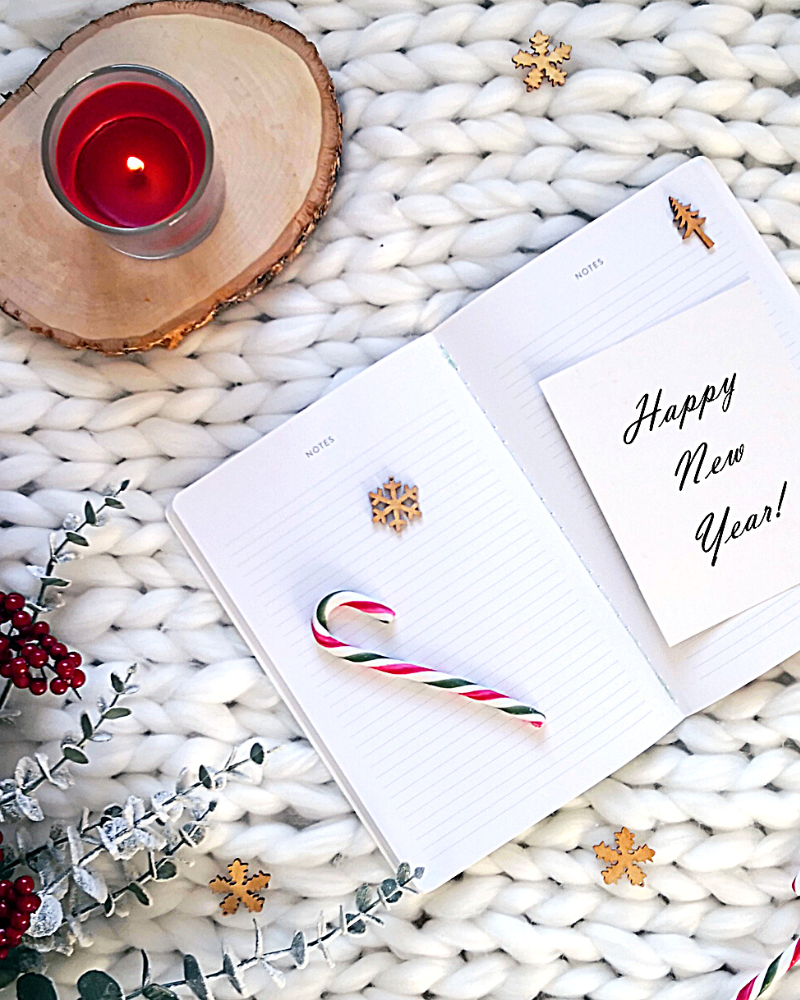 NOTES
NOTES
Happy
New
Year!